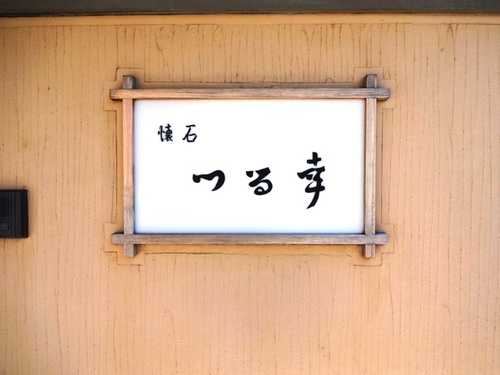 懐石
つる幸